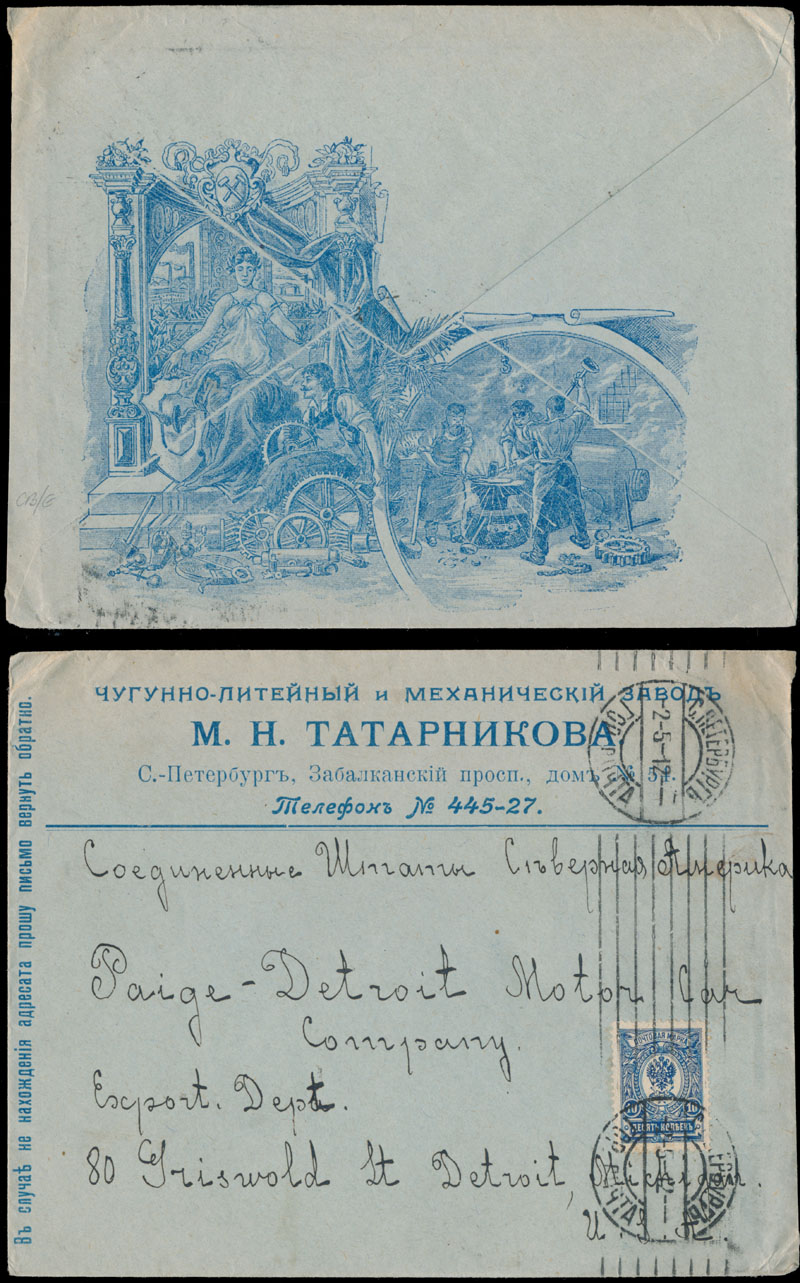 CB/G
ЧУГУННО-ЛИТЕЙНЫЙ и МЕХАНИЧЕСКІЙ ЗАВОДЪ
М. Н. ТАТАРНИКОВА
С.-Петербургъ, Забалканскій просп., домъ № 54.
Телефонъ № 445-27.
С.ПЕТЕРБУРГЪ
2-5-12
ПОЧТА
Въ случаѣ не нахожденія адресата прошу письмо вернуть обратно.
Соединенные Штаты Сѣверная Америка
Paige-Detroit Motor Car
Company.
Export. Dept.
80 Griswold St Detroit, Michigan.
U. S. A.
ПОЧТОВАЯ МАРКА
10 10
ДЕСЯТЬ КОПѢЕКЪ